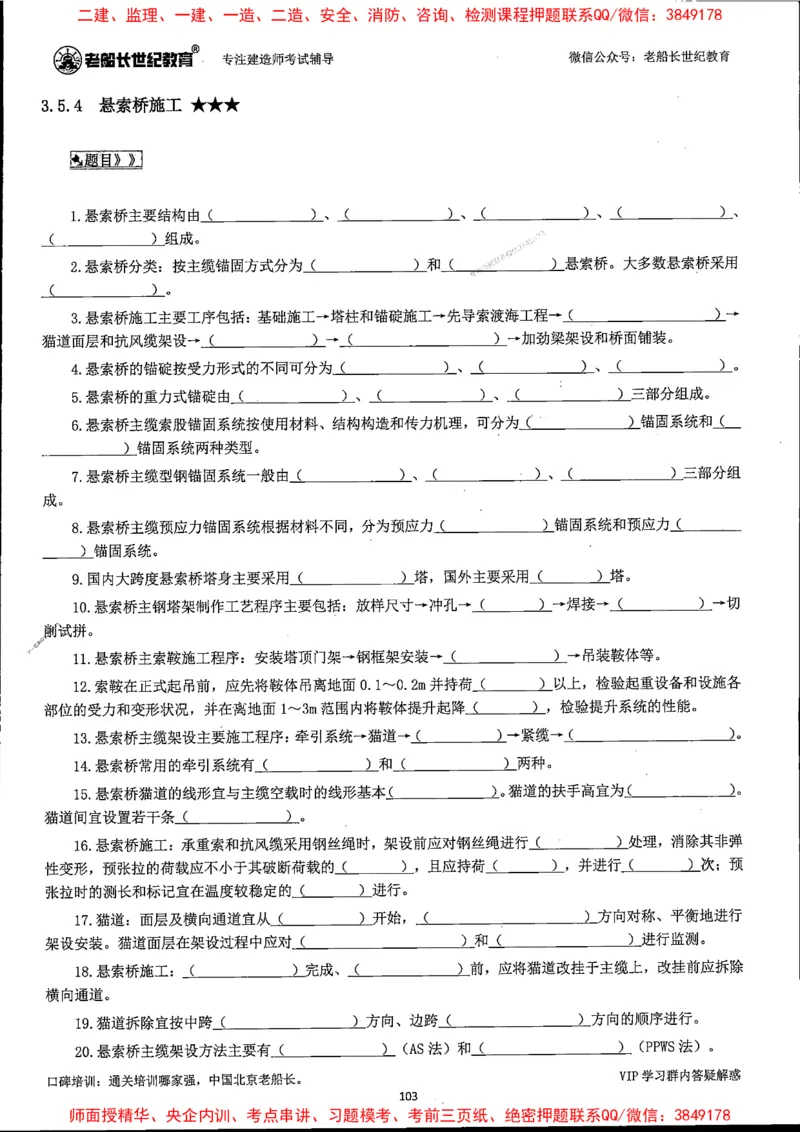 二建、监理、一建、一造、二造、安全、消防、咨询、检测课程押题联系QQ/微信：3849178
老船长世纪教育® 专注建造师考试辅导 微信公众号：老船长世纪教育
3.5.4 悬索桥施工 ★★★
题目》》
1.悬索桥主要结构由（____）、（____）、（____）、（____）、
（____）组成。
2.悬索桥分类：按主缆锚固方式分为（____）和（____）悬索桥。大多数悬索桥采用
（____）。
3.悬索桥施工主要工序包括：基础施工→塔柱和锚碇施工→先导索渡海工程→（____）→
猫道面层和抗风缆架设→（____）→（____）→加劲梁架设和桥面铺装。
4.悬索桥的锚碇按受力形式的不同可分为（____）、（____）、（____）。
5.悬索桥的重力式锚碇由（____）、（____）、（____）三部分组成。
6.悬索桥主缆索股锚固系统按使用材料、结构构造和传力机理，可分为（____）锚固系统和（__
____）锚固系统两种类型。
7.悬索桥主缆型钢锚固系统一般由（____）、（____）、（____）三部分组
成。
8.悬索桥主缆预应力锚固系统根据材料不同，分为预应力（____）锚固系统和预应力（____
____）锚固系统。
9.国内大跨度悬索桥塔身主要采用（____）塔，国外主要采用（____）塔。
10.悬索桥主钢塔架制作工艺程序主要包括：放样尺寸→冲孔→（____）→焊接→（____）→切
削试拼。
11.悬索桥主索鞍施工程序：安装塔顶门架→钢框架安装→（____）→吊装鞍体等。
12.索鞍在正式起吊前，应先将鞍体吊离地面0.1～0.2m并持荷（____）以上，检验起重设备和设施各
部位的受力和变形状况，并在离地面1～3m范围内将鞍体提升起降（____），检验提升系统的性能。
13.悬索桥主缆架设主要施工程序：牵引系统→猫道→（____）→紧缆→（____）。
14.悬索桥常用的牵引系统有（____）和（____）两种。
15.悬索桥猫道的线形宜与主缆空载时的线形基本（____）。猫道的扶手高宜为（____）。
猫道间宜设置若干条（____）。
16.悬索桥施工：承重索和抗风缆采用钢丝绳时，架设前应对钢丝绳进行（____）处理，消除其非弹
性变形，预张拉的荷载应不小于其破断荷载的（____），且应持荷（____），并进行（____）次；预
张拉时的测长和标记宜在温度较稳定的（____）进行。
17.猫道：面层及横向通道宜从（____）开始，（____）方向对称、平衡地进行
架设安装。猫道面层在架设过程中应对（____）和（____）进行监测。
18.悬索桥施工：（____）完成、（____）前，应将猫道改挂于主缆上，改挂前应拆除
横向通道。
19.猫道拆除宜按中跨（____）方向、边跨（____）方向的顺序进行。
20.悬索桥主缆架设方法主要有（____）（AS法）和（____）（PPWS法）。
口碑培训：通关培训哪家强，中国北京老船长。 VIP学习群内答疑解惑
103
师面授精华、央企内训、考点串讲、习题模考、考前三页纸、绝密押题联系QQ/微信：3849178